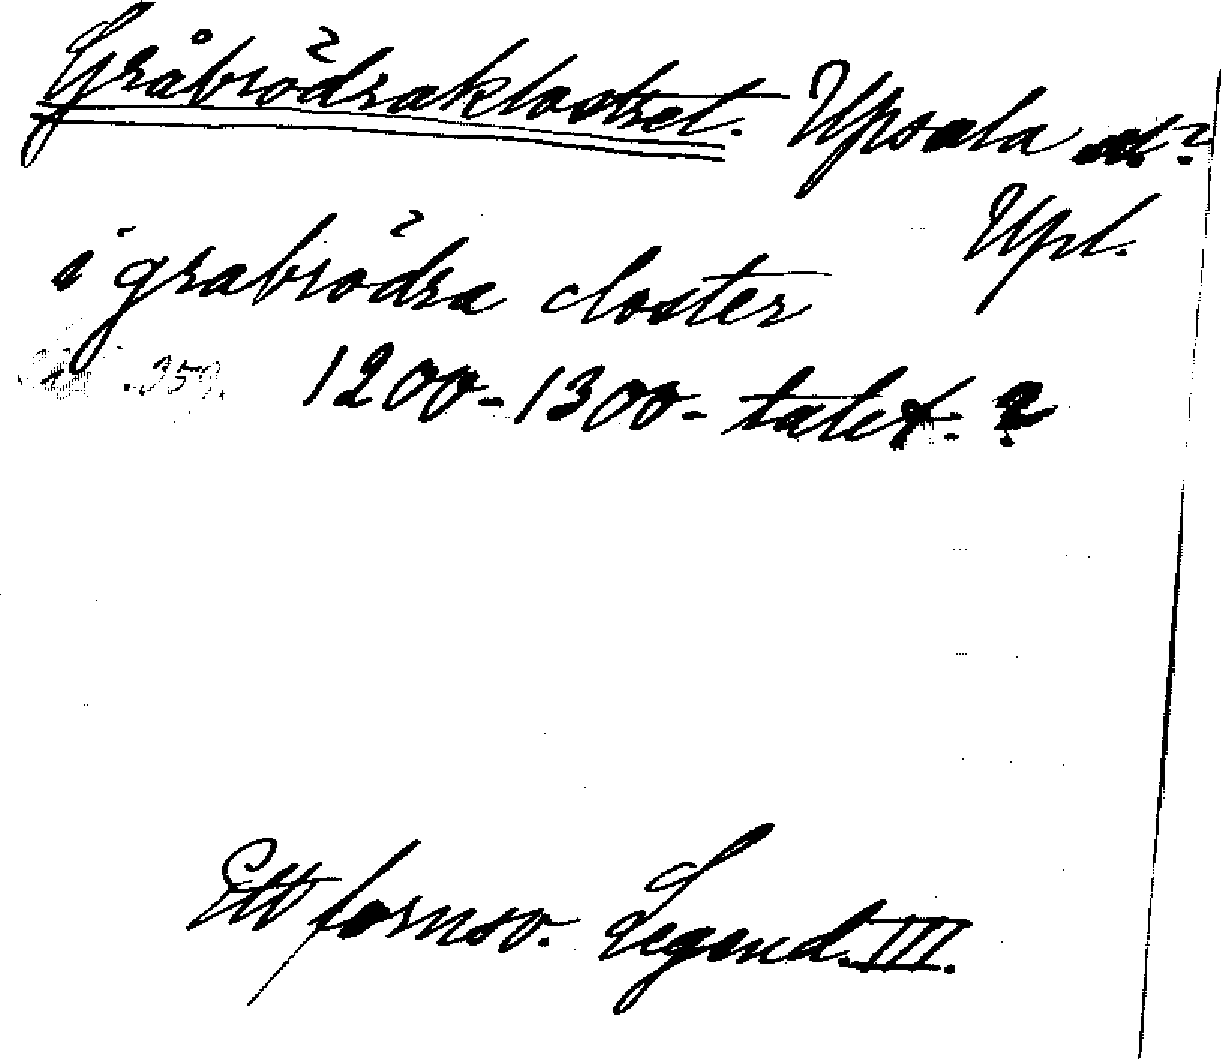 Gråbrödraklostret. Upsala st?
Upl.
i grabrödra closter
.359. 1200-1300-talet. ?
Ett fornsv. Legend. III.